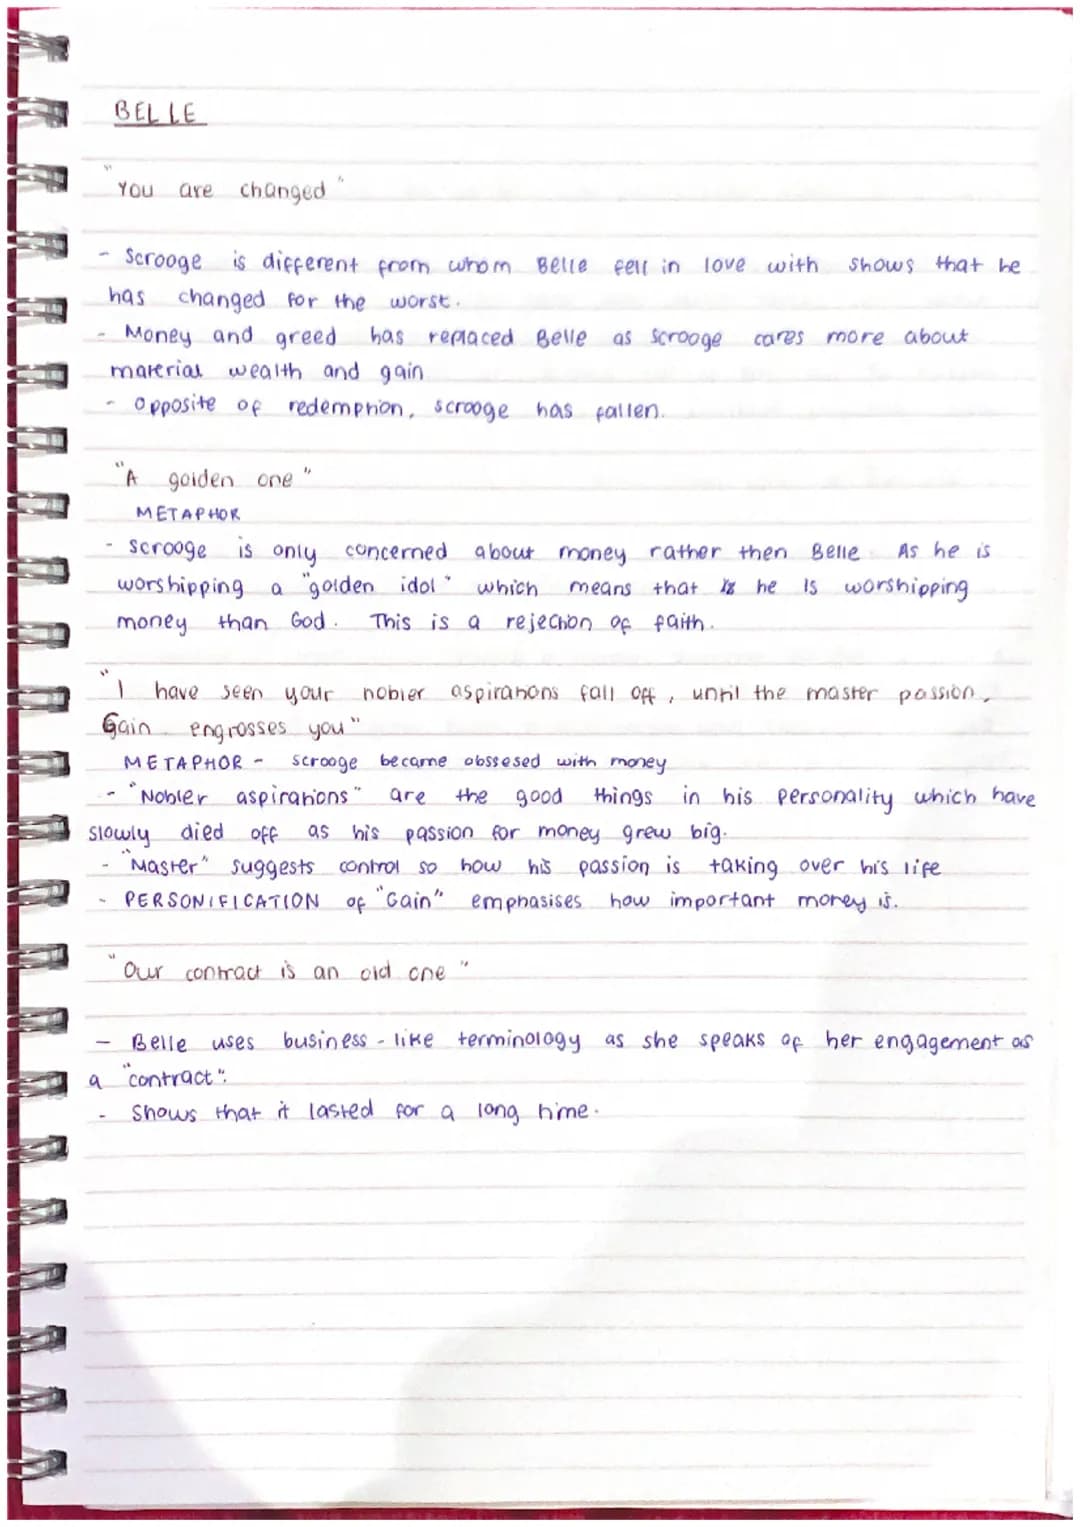 BELLE
"You are changed"
- Scrooge is different from whom Belle fell in love with shows that he
has changed for the worst.
- Money and greed has replaced Belle as Scrooge cares more about
material wealth and gain
- Opposite of redemption, scrooge has fallen.
"A golden one"
METAPHOR
- Scrooge is only concerned about money rather then Belle. As he is
worshipping a "golden idol" which means that he is worshipping
money than God. This is a rejection of faith.
"I have seen your nobler aspirations fall off, until the master passion,
Gain engrosses you"
METAPHOR - Scrooge became obssesed with money
- "Nobler aspirations" are the good things in his personality which have
slowly died off as his passion for money grew big.
- "Master" suggests control so how his passion is taking over his life
- PERSONIFICATION of "Gain" emphasises how important money is.
"Our contract is an old one"
- Belle uses business-like terminology as she speaks of her engagement as
a "contract".
- Shows that it lasted for a long time.